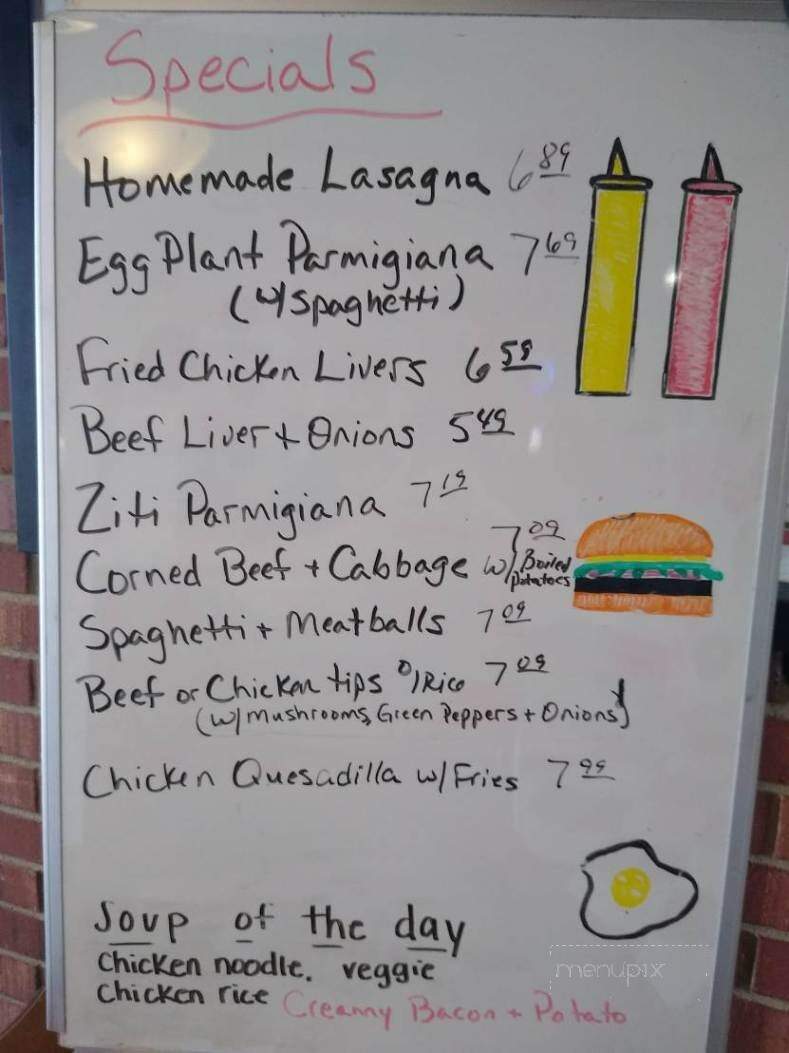 Specials
Homemade Lasagna 6 89
Egg Plant Parmigiana 7 69
(w/Spaghetti)
Fried Chicken Livers 6 59
Beef Liver + Onions 5 49
Ziti Parmigiana 7 19
Corned Beef + Cabbage w/ Boiled Potatoes 7 09
Spaghetti + Meatballs 7 09
Beef or Chicken tips O/Rice 7 09
(w/Mushrooms, Green Peppers + Onions)
Chicken Quesadilla w/Fries 7 99
Soup of the day
Chicken noodle. veggie
Chicken rice Creamy Bacon + Potato
menupix